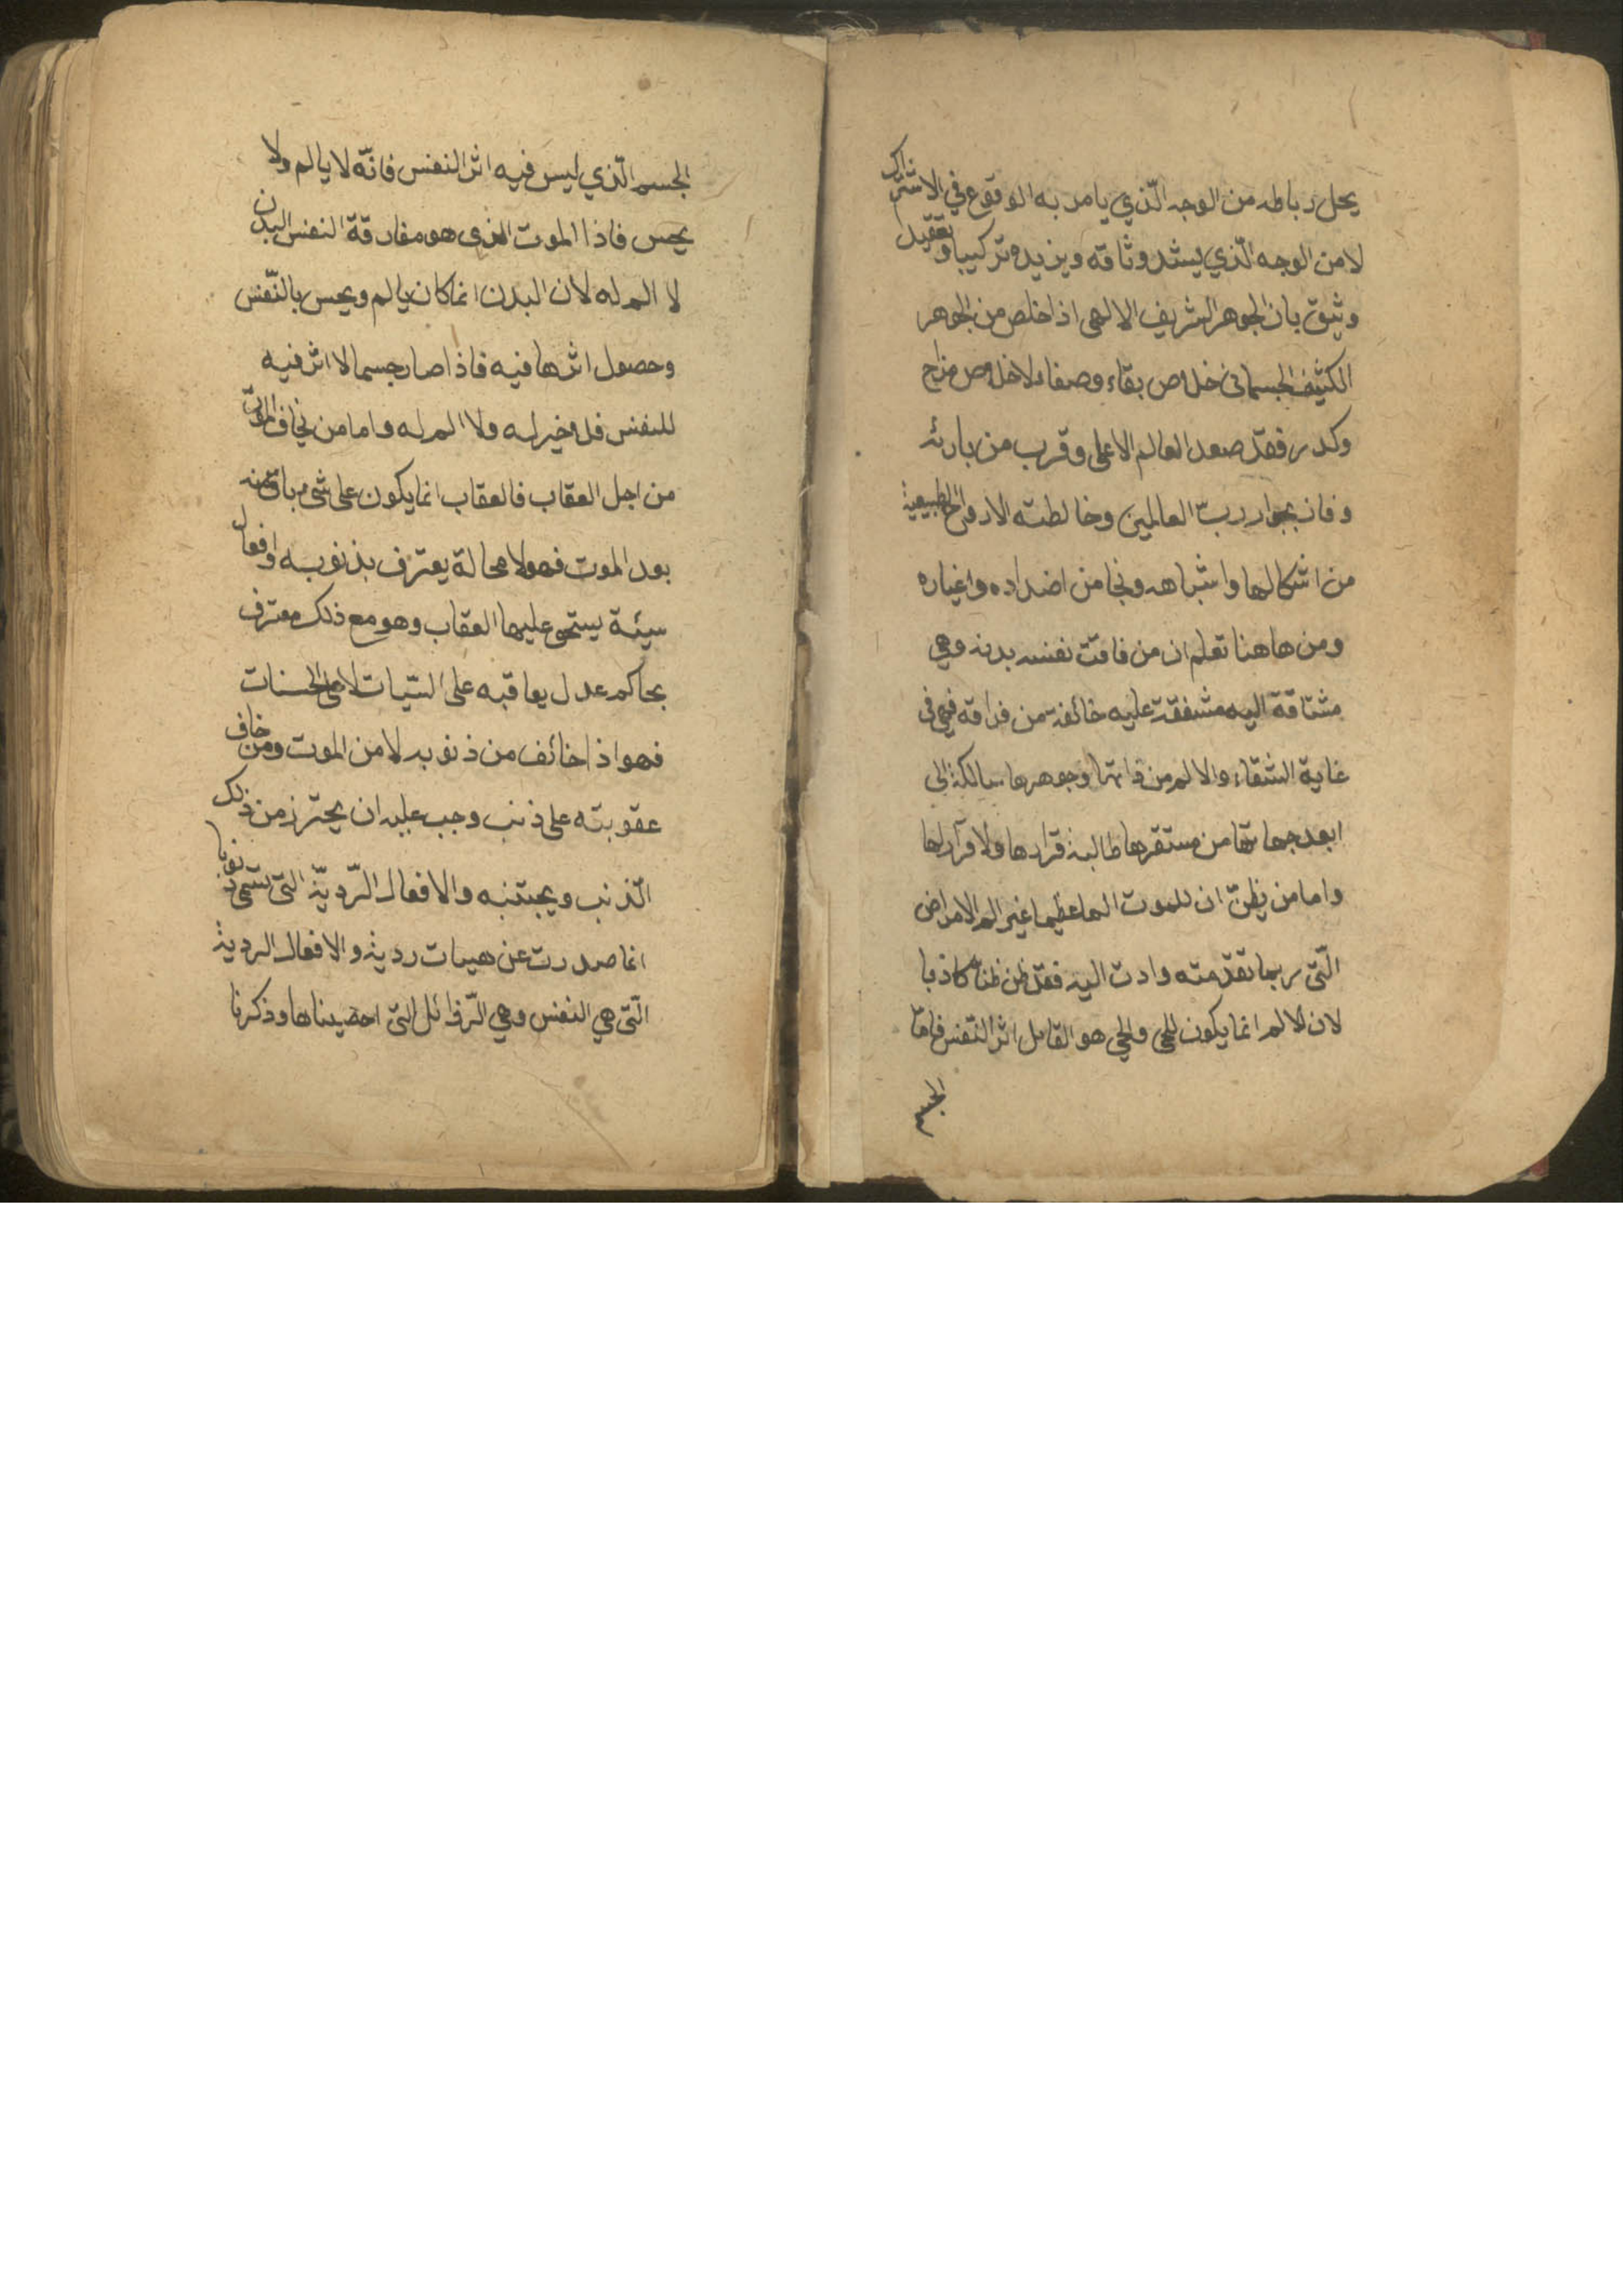 يحل رباطه من الوجه الّذي يامر به الوقوع في الاشتراك
لا من الوجه الّذي يشد وثاقه ويزيده تركيبا وتعقيدا
وثيق بان الجوهر الشريف الالهى اذا خلص من الجوهر
الكثيف الجسمانى خلوص بقاء وصفاء لا خلوص مزاج
وكدر فقد صعد العالم الاعلى وقرب من بارئه
وفاز بجوار ربّ العالمين وخالطته الارواح الطبيعية
من اشكالها واشباهه ونجا من اضداده واغياره
ومن هاهنا تعلم ان من فاقت نفسه بدنه وهي
مشتاقة اليه مشفقة عليه خائفة من فراقه فهى فى
غاية الشقاء والالم من ذاتها وجوهرها سالكة الى
ابعد جهاتها من مستقرها طالبة قرارها ولا قرآر لها
واما من يظنّ ان للموت الما عظيما غير الم الامراض
الّتى ربما تقدّمته وادت اليه فقد ظن ظنا كاذبا
لان الالم انما يكون للحى والحي هو القابل اثر النّفس فامّا
الجسم
الجسم الّذي ليس فيه اثر النفس فانّه لا يالم ولا
يحس فاذا الموت الذى هو مفارقة النفس البدن
لا الم له لان البدن انما كان يالم ويحس بالنّفس
وحصول اثرها فيه فاذا صار جسما لا اثر فيه
للنفس فلا خير له ولا الم له واما من يخاف الموت
من اجل العقاب فالعقاب انما يكون على شى باق منه
بعد الموت فهو لا محالة يعترف بذنوب له وافعال
سيئة يستحق عليها العقاب وهو مع ذلك معترف
بحاكم عدل يعاقبه على السّيات لا على الحسنات
فهو اذا خائف من ذنوبه لا من الموت ومن خاف
عقوبته على ذنب وجب عليه ان يحترز من ذلك
الّذنب ويجتنبه والافعال الرّديّة التى تسمى ذنوبا
انما صدرت عن هيات ردية والافعال الردية
الّتى هي النفس وهي الرّذائل التى احصيناها وذكرنا